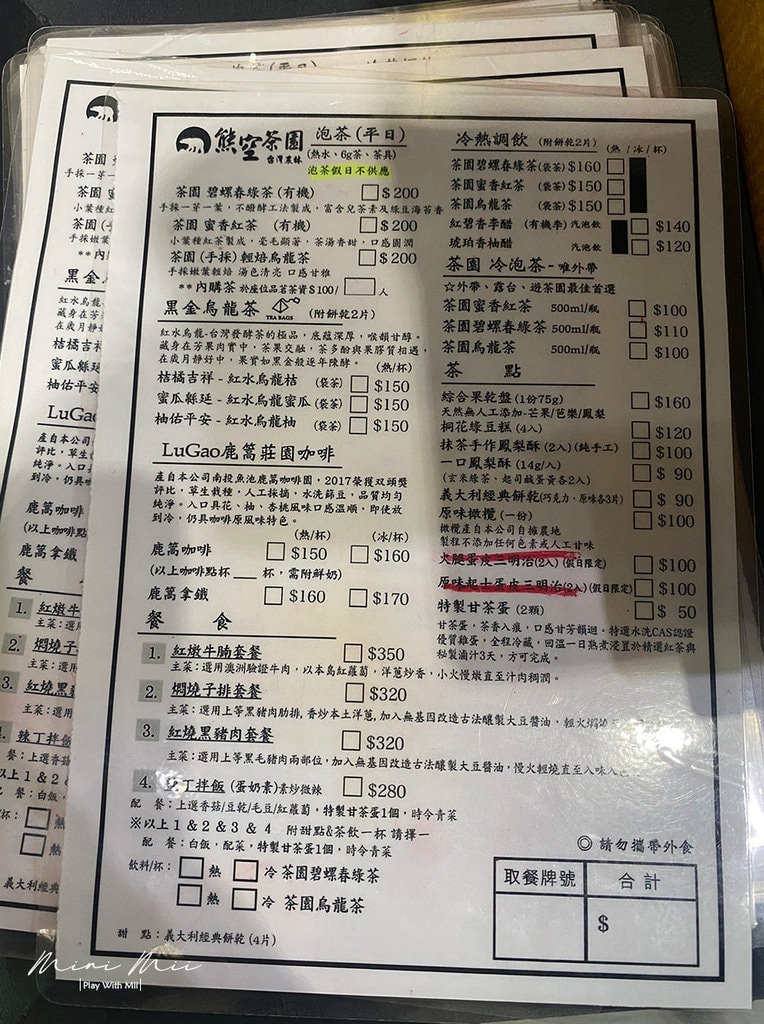 熊空茶園
台灣農林
泡茶(平日)
(熱水、6g茶、茶具)
泡茶假日不供應
茶園 碧螺春綠茶(有機) $200
手採一芽一葉，不醱酵工法製成，富含兒茶素及綠豆海苔香
茶園 蜜香紅茶 (有機) $200
小葉種紅茶製成，毫毛顯著，茶湯香甜，口感圓潤
茶園 (手採)輕焙烏龍茶 $200
手採嫩葉輕焙 湯色清亮 口感甘雅
**內購茶 於座位品茗茶資$100/ 人
黑金烏龍茶 TEA BAGS (附餅乾2片)
紅水烏龍-台灣發酵茶的極品，底蘊深厚，喉韻甘醇。
藏身在芳果肉實中，茶果交融，茶多酚與果膠質相遇，
在歲月靜好中，果實如黑金般逐年陳酵。
(熱/杯)
桔橘吉祥-紅水烏龍桔 (袋茶) $150
蜜瓜縣延-紅水烏龍蜜瓜(袋茶) $150
柚佑平安-紅水烏龍柚 (袋茶) $150
LuGao鹿篙莊園咖啡
產自本公司南投魚池鹿篙咖啡園，2017榮獲双頭獎
評比，草生栽種，人工採摘，水洗篩豆，品質均勻
純淨。入口具花、柚、杏桃風味口感溫順，即使放
到冷，仍具咖啡原風味特色。
(熱/杯) (冰/杯)
鹿篙咖啡 $150 $160
(以上咖啡點杯 杯，需附鮮奶)
鹿篙拿鐵 $160 $170
餐 食
1. 紅燉牛腩套餐 $350
主菜：選用澳洲驗證牛肉，以本島紅蘿蔔，洋蔥炒香，小火慢燉直至汁肉稠潤。
2. 燜燒子排套餐 $320
主菜：選用上等黑豬肉肋排，香炒本土洋蔥，加入無基因改造古法釀製大豆醬油，輕火燜
3. 紅燒黑豬肉套餐 $320
主菜：選用上等黑毛豬肉兩部位，加入無基因改造古法釀製大豆醬油，慢火輕燒直至入味
4. 辣丁拌飯 (蛋奶素)素炒微辣 $280
配 餐：上選香菇/豆乾/毛豆/紅蘿蔔，特製甘茶蛋1個，時令青菜
※以上1&2&3&4 附甜點&茶飲一杯 請擇一
配 餐：白飯，配菜，特製甘茶蛋1個，時令青菜
飲料/杯： 熱 冷 茶園碧螺春綠茶
熱 冷 茶園烏龍茶
甜 點：義大利經典餅乾(4片)
冷熱調飲 (附餅乾2片) (熱/冰/杯)
茶園碧螺春綠茶(袋茶) $160
茶園蜜香紅茶 (袋茶) $150
茶園烏龍茶 (袋茶) $150
紅碧香李醋 (有機李) 汽泡飲 $140
琥珀香柚醋 汽泡飲 $120
茶園 冷泡茶-唯外帶
☆外帶、露台、遊茶園最佳首選
茶園蜜香紅茶 500ml/瓶 $100
茶園碧螺春綠茶 500ml/瓶 $110
茶園烏龍茶 500ml/瓶 $100
茶 點
綜合果乾盤(1份75g) $160
天然無人工添加-芒果/芭樂/鳳梨
桐花綠豆糕(4入) $120
抹茶手作鳳梨酥(2入)(純手工) $100
一口鳳梨酥 (14g/入) $ 90
(玄米綠茶、起司鹹蛋黃各2入)
義大利經典餅乾(巧克力、原味各3片) $ 90
原味橄欖(一份) $100
橄欖產自本公司自擁農地
製程不添加任何色素或人工甘味
火腿蛋皮三明治(2入)(假日限定) $100
原味起士蛋皮三明治(2入)(假日限定) $100
特製甘茶蛋(2顆) $ 50
甘茶蛋，茶香入痕，口感甘芳韻迴。特選水洗CAS認證
優質雞蛋，全程冷藏，回溫一日熟煮浸置於精選紅茶與
秘製滷汁3天，方可完成。
◎ 請勿攜帶外食
取餐牌號 合計
$
Mini Mii
Play With MII